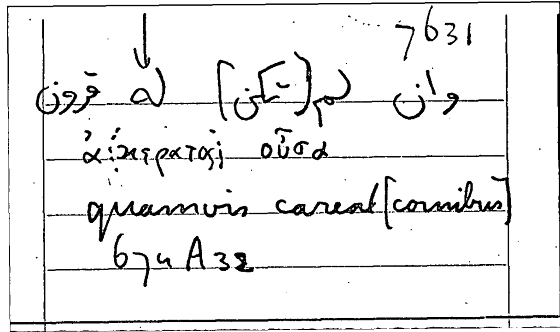 7631
وان لم [تكن] له قرون
ἀκέρατος οὖσα
quamvis careat [cornibus]
674 A32